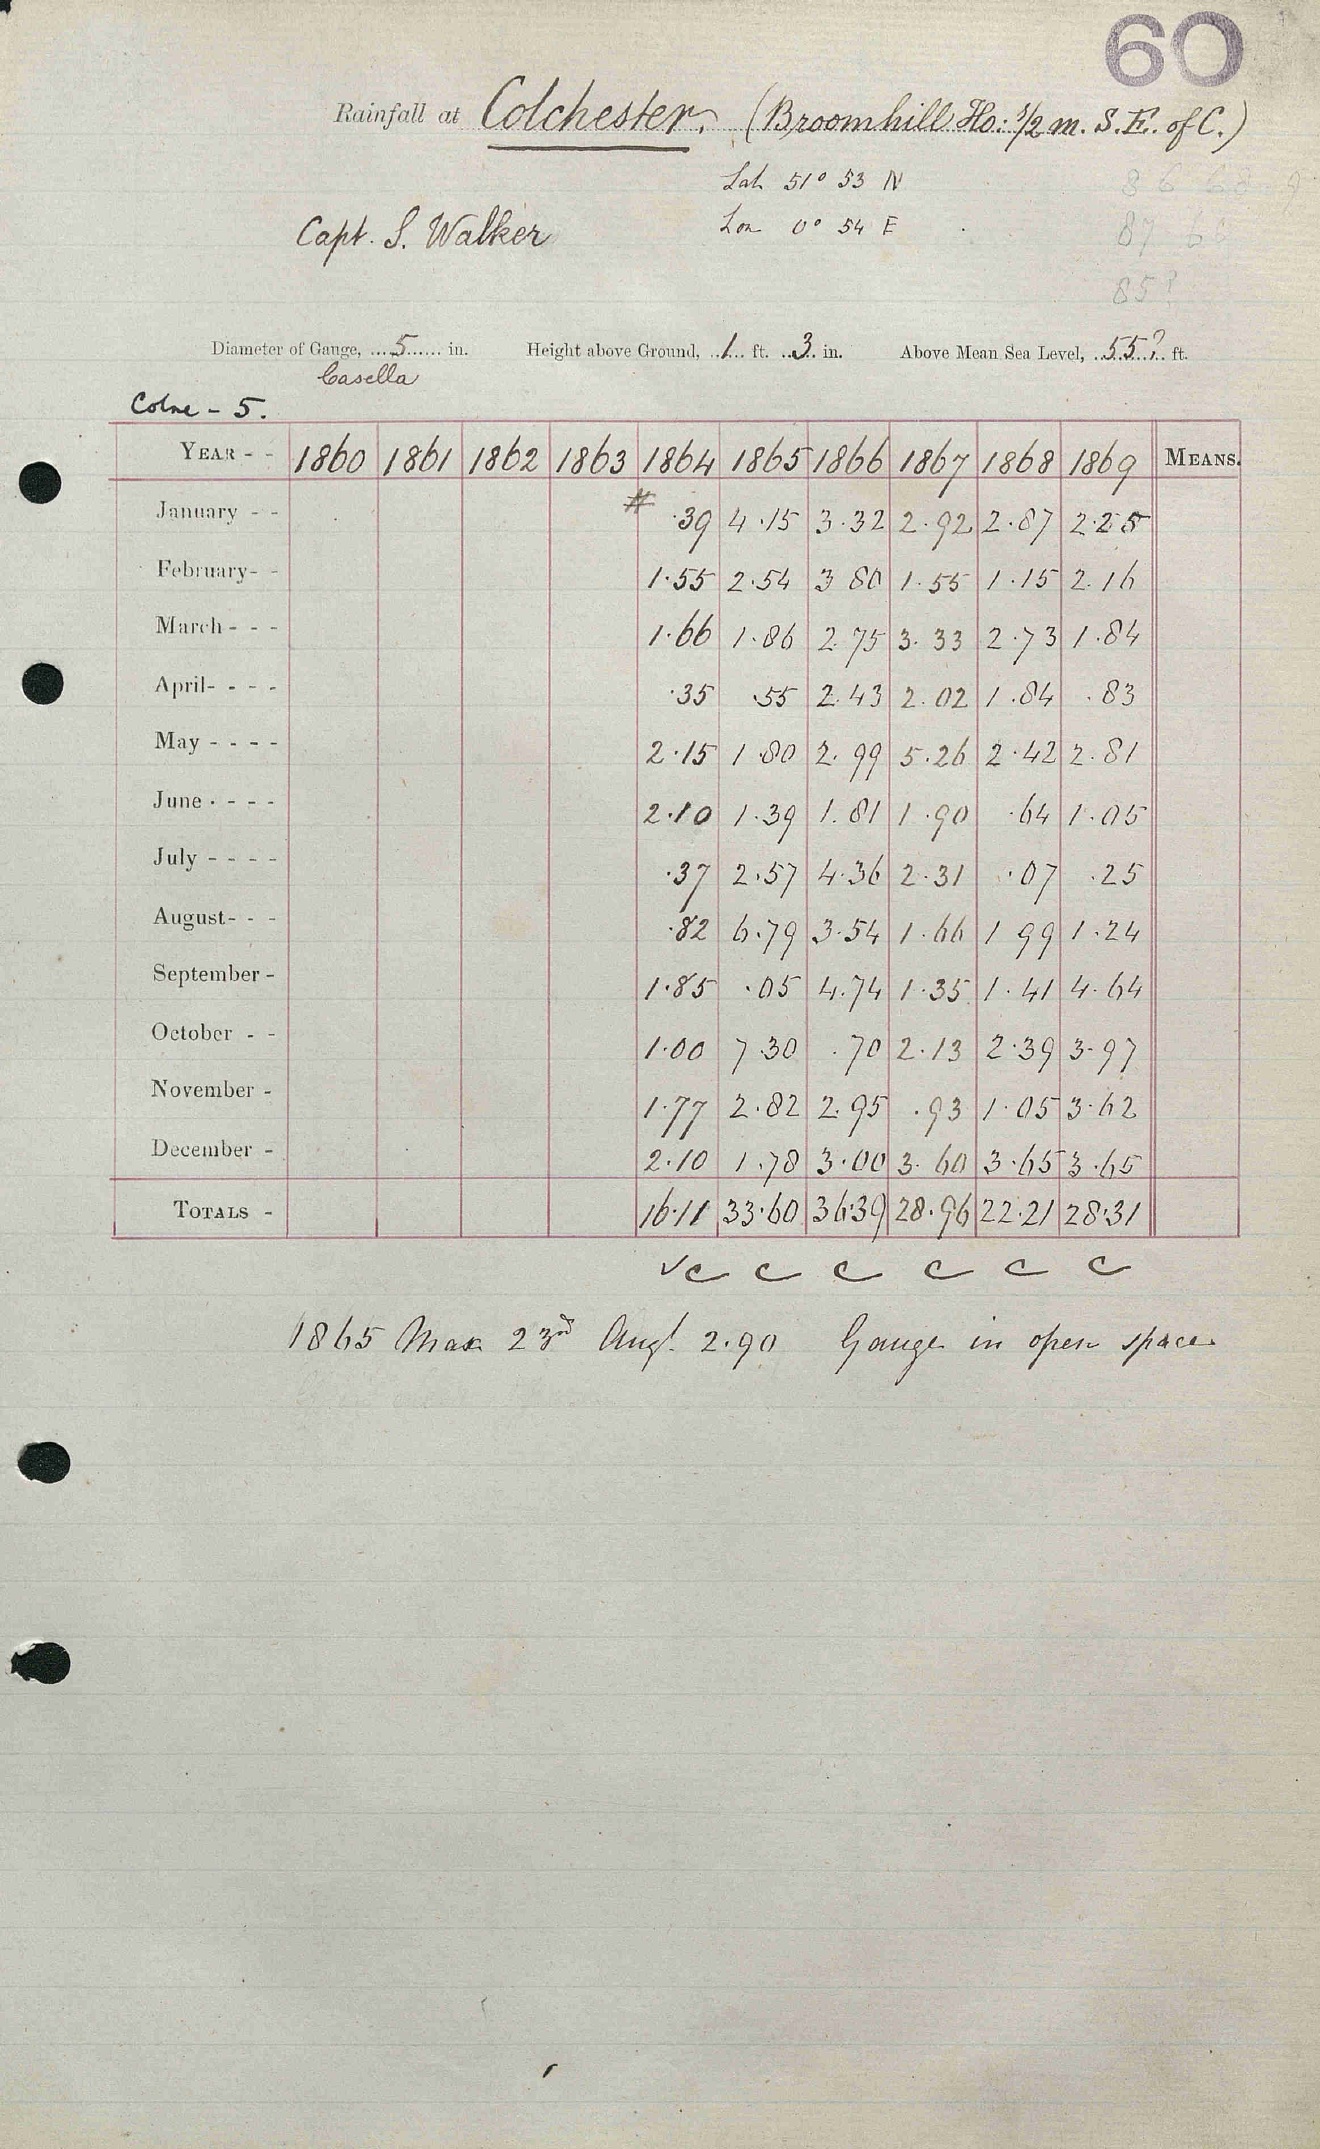 60
Rainfall at Colchester. (Broomhill Ho: 1/2 m. S. E. of C.)
Lat 51° 53 N
Capt. S. Walker
Lon 0° 54 E
87 66
85?
Diameter of Gauge, 5 in. Height above Ground, 1 ft. 3 in. Above Mean Sea Level, 55? ft.
Casella
Colne - 5.
YEAR - - 1860 1861 1862 1863 1864 1865 1866 1867 1868 1869 MEANS.
January - - .39 4.15 3.32 2.92 2.87 2.25
February - - 1.55 2.54 3 80 1.55 1.15 2.16
March - - - 1.66 1.86 2.75 3.33 2.73 1.84
April - - - - .35 .55 2.43 2.02 1.84 .83
May - - - - 2.15 1 80 2.99 5.26 2.42 2.81
June - - - - 2.10 1.39 1.81 1.90 .64 1.05
July - - - - .37 2.57 4.36 2.31 .07 .25
August - - - .82 6.79 3.54 1.66 1 99 1.24
September - 1.85 .05 4.74 1.35 1.41 4.64
October - - 1.00 7 30 .70 2.13 2.39 3.97
November - 1.77 2.82 2.95 .93 1.05 3.62
December - 2.10 1.78 3.00 3.60 3.65 3.65
TOTALS - 16.11 33.60 36.39 28.96 22.21 28.31
✓c c c c c c
1865 Max 23rd Augt. 2.90 Gauge in open space